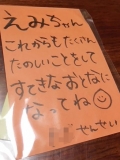 えみちゃん
これからもたくさん
たのしいことをして
すてきなおとなに
なってね
せんせい